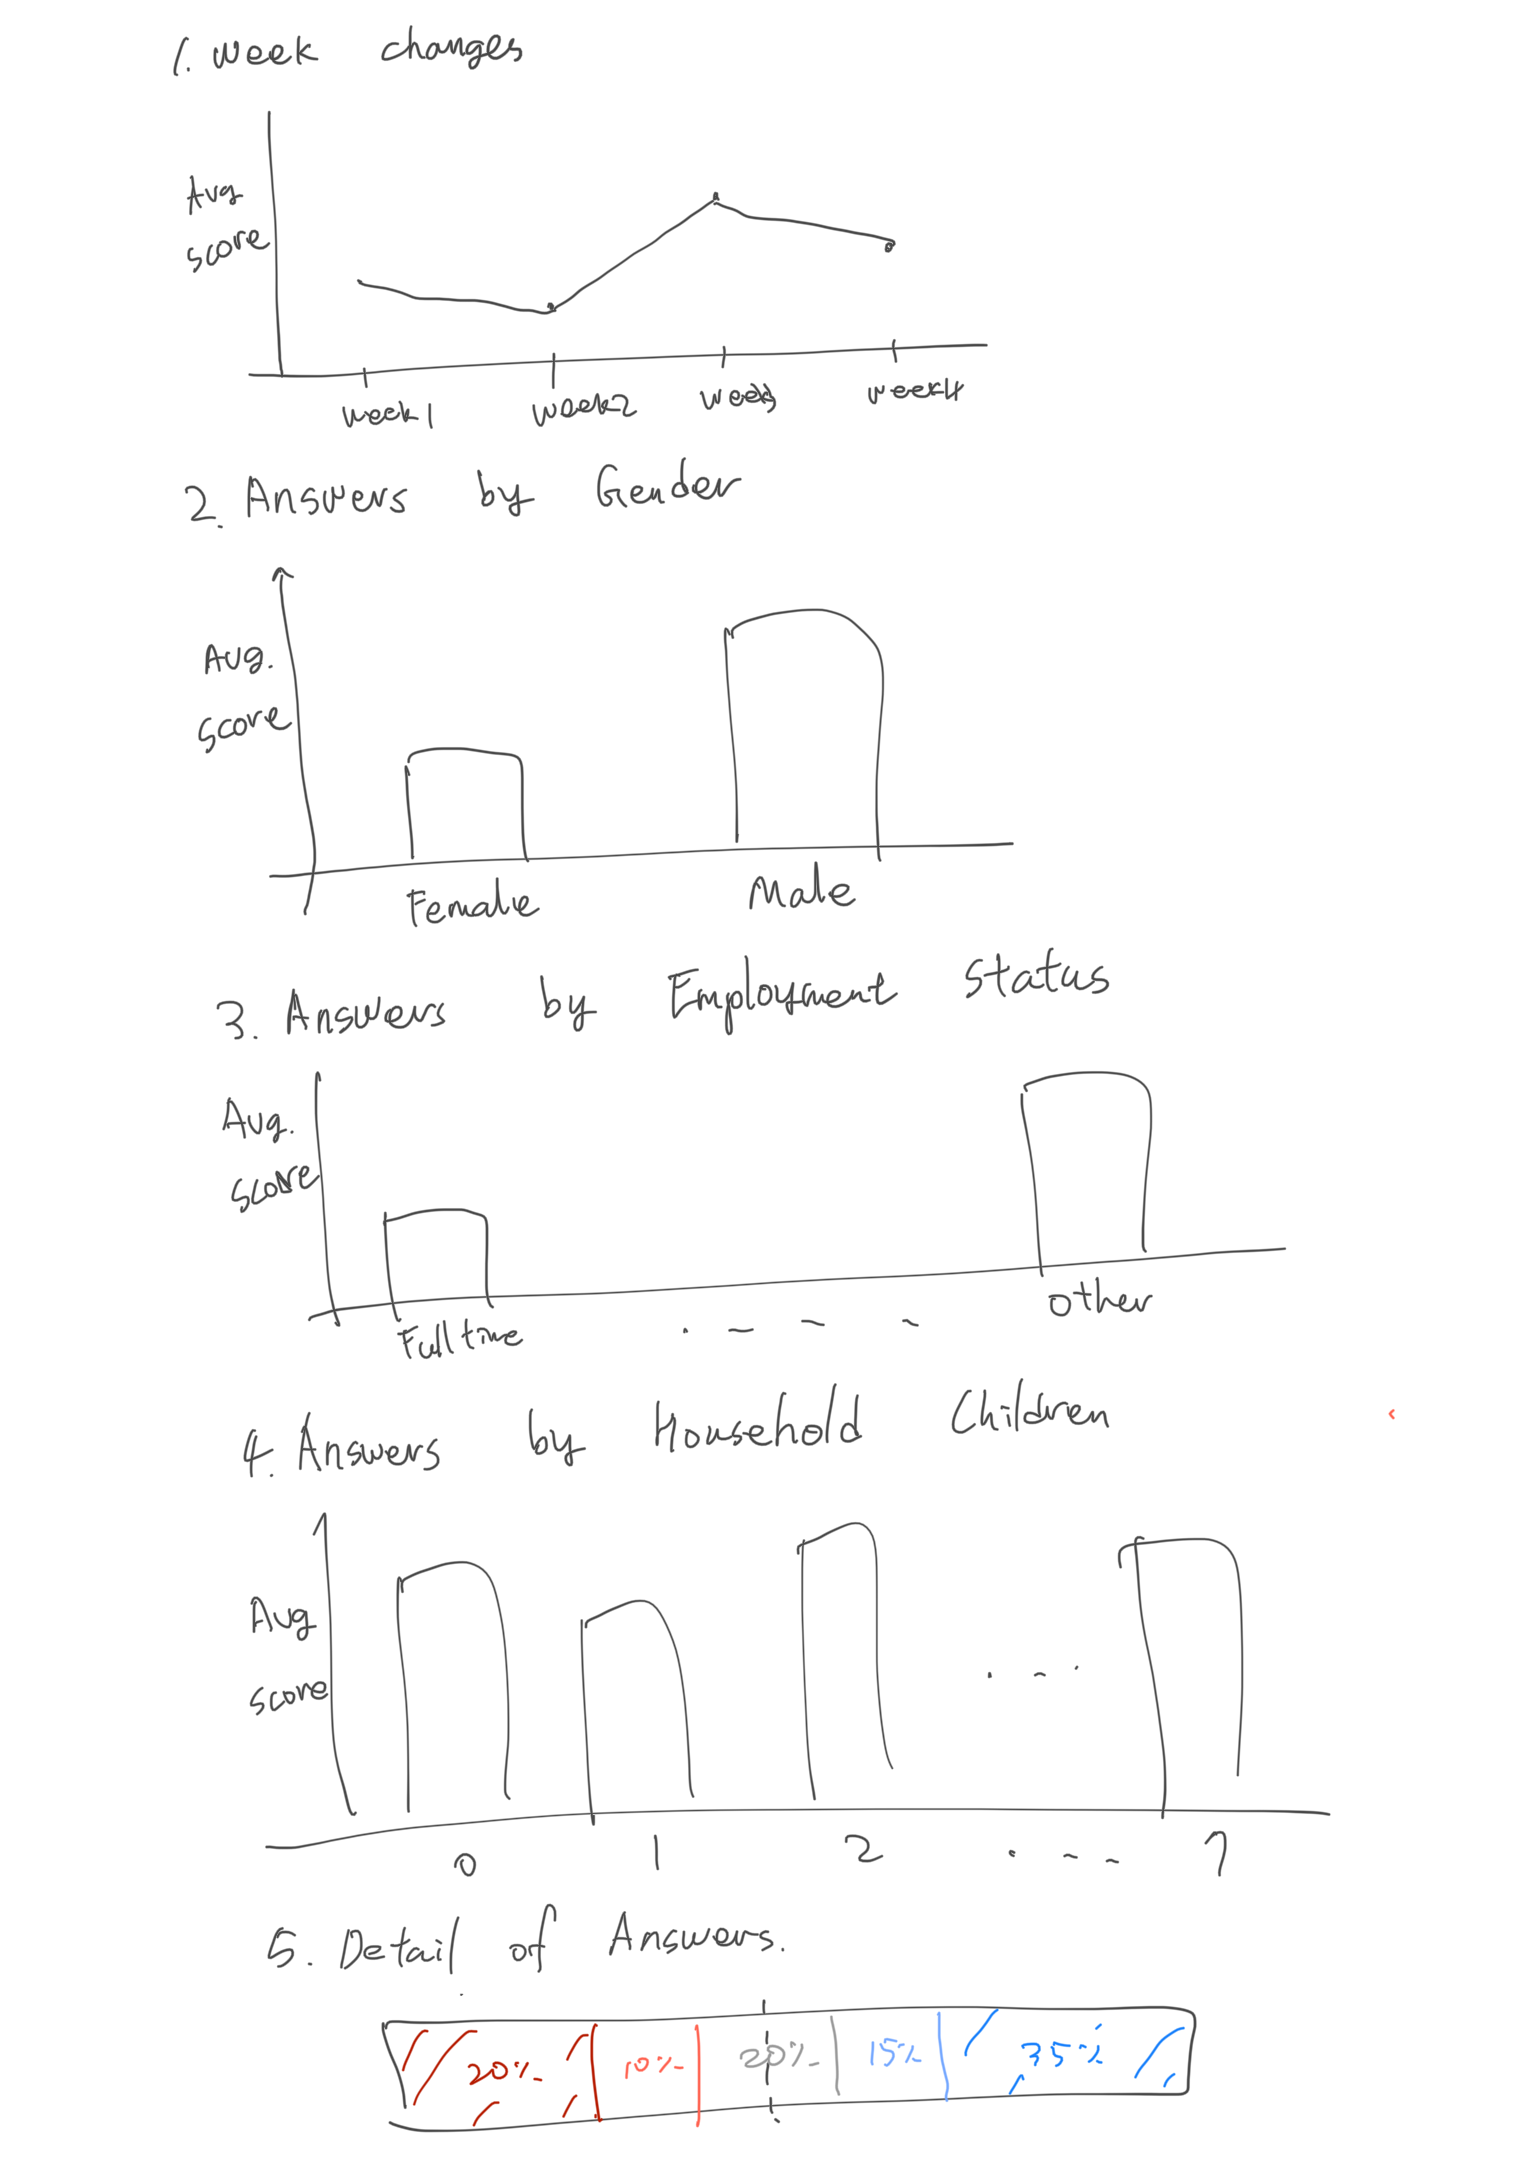 1. Week changes
Avg
score
week1 week2 week3 week4
2. Answers by Gender
Avg.
score
Female Male
3. Answers by Employment Status
Avg.
score
Full time other
4. Answers by Household Children
Avg
score
0 1 2 7
5. Detail of Answers.
20% 10% 20% 15% 35%